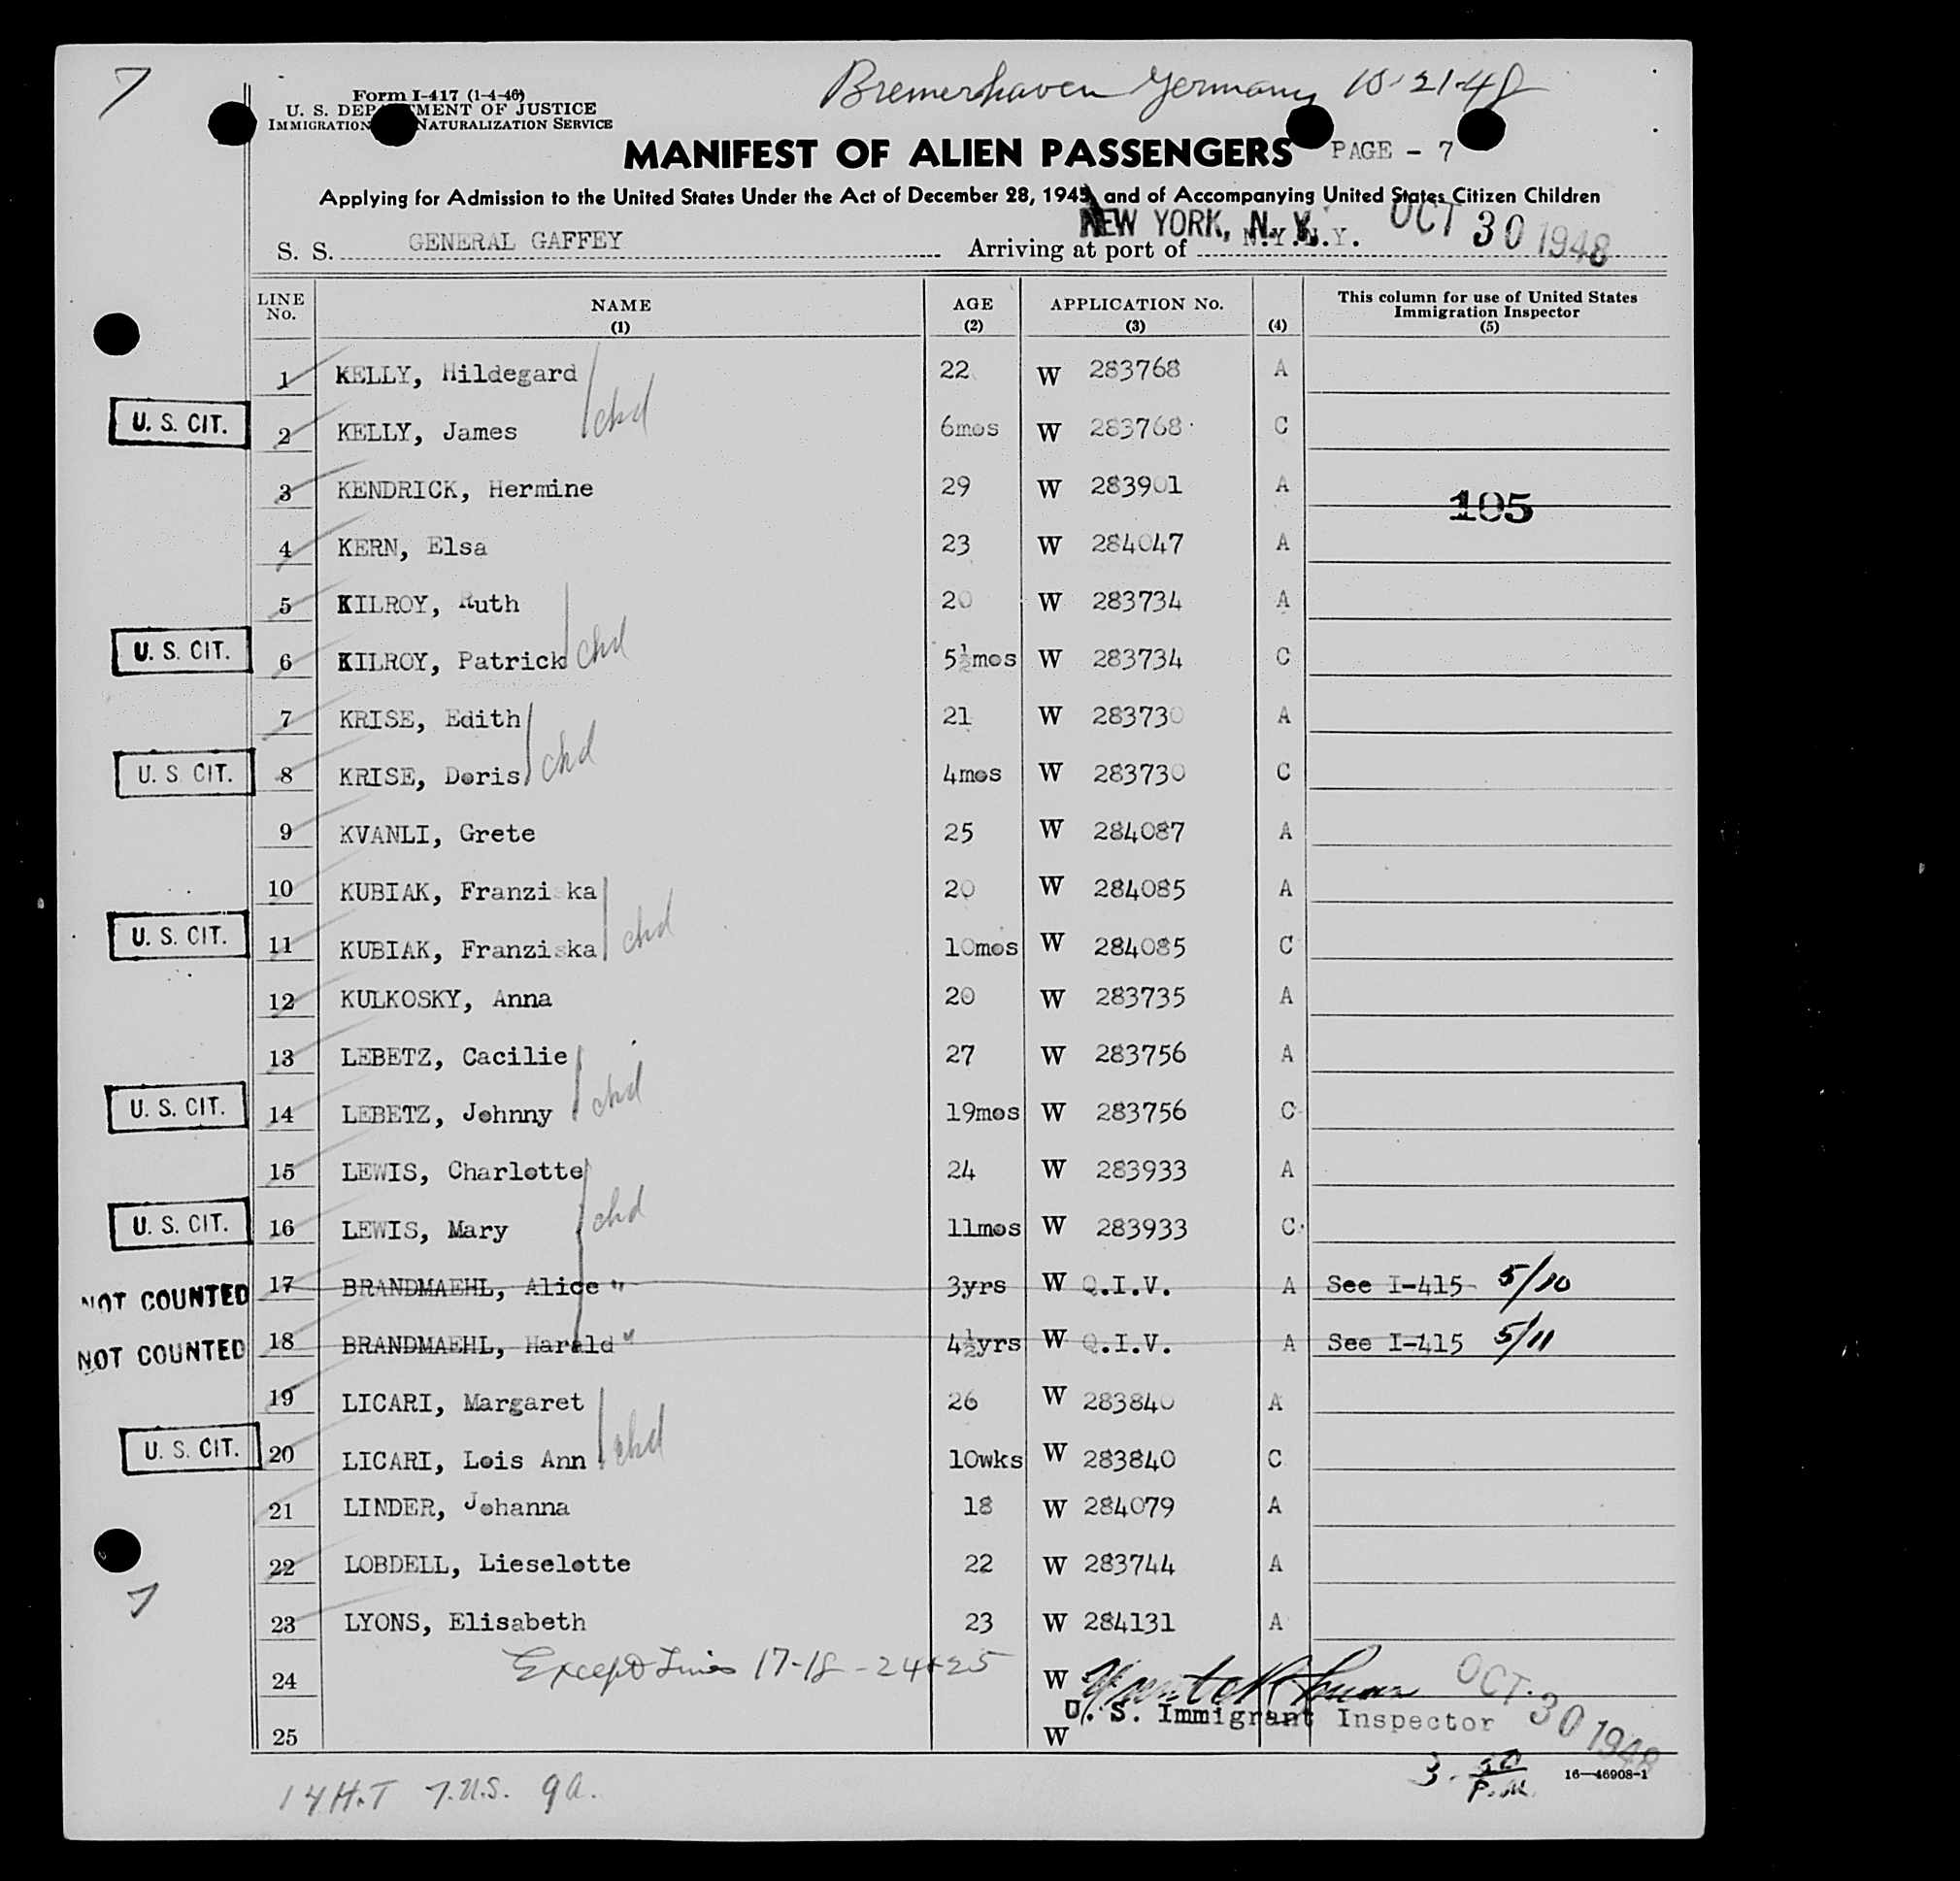 7
Bremerhaven Germany 10-21-48
Form I-417 (1-4-46)
U. S. DEP MENT OF JUSTICE
IMMIGRATION NATURALIZATION SERVICE
MANIFEST OF ALIEN PASSENGERS PAGE - 7
Applying for Admission to the United States Under the Act of December 28, 1945, and of Accompanying United States Citizen Children
NEW YORK, N. Y. OCT 30 1948
S. S. GENERAL GAFFEY Arriving at port of N.Y.N.Y.
LINE No. NAME (1) AGE (2) APPLICATION No. (3) (4) This column for use of United States Immigration Inspector (5)
1 KELLY, Hildegard 22 W 283768 A
chd
U. S. CIT. 2 KELLY, James 6mos W 283768 C
3 KENDRICK, Hermine 29 W 283901 A
105
4 KERN, Elsa 23 W 284047 A
5 KILROY, Ruth 20 W 283734 A
U. S. CIT. 6 KILROY, Patrick chd 5½mos W 283734 C
7 KRISE, Edith 21 W 283730 A
U. S. CIT. 8 KRISE, Doris chd 4mos W 283730 C
9 KVANLI, Grete 25 W 284087 A
10 KUBIAK, Franziska 20 W 284085 A
U. S. CIT. 11 KUBIAK, Franziska chd 10mos W 284085 C
12 KULKOSKY, Anna 20 W 283735 A
13 LEBETZ, Cacilie 27 W 283756 A
U. S. CIT. 14 LEBETZ, Johnny chd 19mos W 283756 C
15 LEWIS, Charlotte 24 W 283933 A
U. S. CIT. 16 LEWIS, Mary chd 11mos W 283933 C
NOT COUNTED 17 BRANDMAEHL, Alice " 3yrs W Q.I.V. A See I-415 5/10
NOT COUNTED 18 BRANDMAEHL, Harald " 4½yrs W Q.I.V. A See I-415 5/11
19 LICARI, Margaret 26 W 283840 A
U. S. CIT. 20 LICARI, Lois Ann chd 10wks W 283840 C
21 LINDER, Johanna 18 W 284079 A
22 LOBDELL, Lieselotte 22 W 283744 A
7
23 LYONS, Elisabeth 23 W 284131 A
Except Lines 17-18-24+25
24 W OCT 30 1948
U. S. Immigrant Inspector
25 W
3 - 50 P.M. 16—46908-1
14 H.T 7.U.S. 9A.